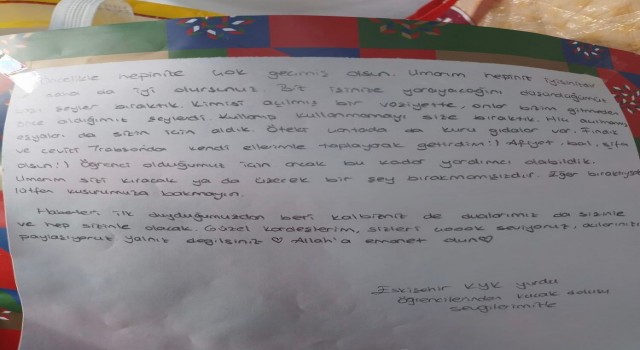 Öncelikle hepinize çok geçmiş olsun. Umarım hepiniz iyisinizdir
daha da iyi olursunuz. Biz işinize yarayacağını düşündüğümüz
bazı şeyler bıraktık. Kimisi açılmış bir vaziyette, onlar bizim gitmeden
önce aldığımız şeylerdi. Kullanıp kullanmamayı size bıraktık. Hiç açılmamış
eşyaları da sizin için aldık. Öteki da kuru gıdalar var. Fındık
ve cevizi Trabzonda kendi ellerimle toplayarak getirdim:) Afiyet, bal, şifa
olsun:) Öğrenci olduğumuz için ancak bu kadar yardımcı olabildik.
Umarım sizi kıracak ya da üzecek bir şey bırakmamışızdır. Eğer bıraktıysak
lütfen kusurumuza bakmayın.
Haberleri ilk duyduğumuzdan beri kalbimiz de dualarımız da sizinle
ve hep sizinle olacak. Güzel kardeşlerim, sizleri çooook seviyoruz, acılarınızı
paylaşıyoruz yalnız değilsiniz ♡ Allah'a emanet olun♡
Eskişehir KYK yurdu
öğrencilerinden kucak dolusu
sevgilerimizle